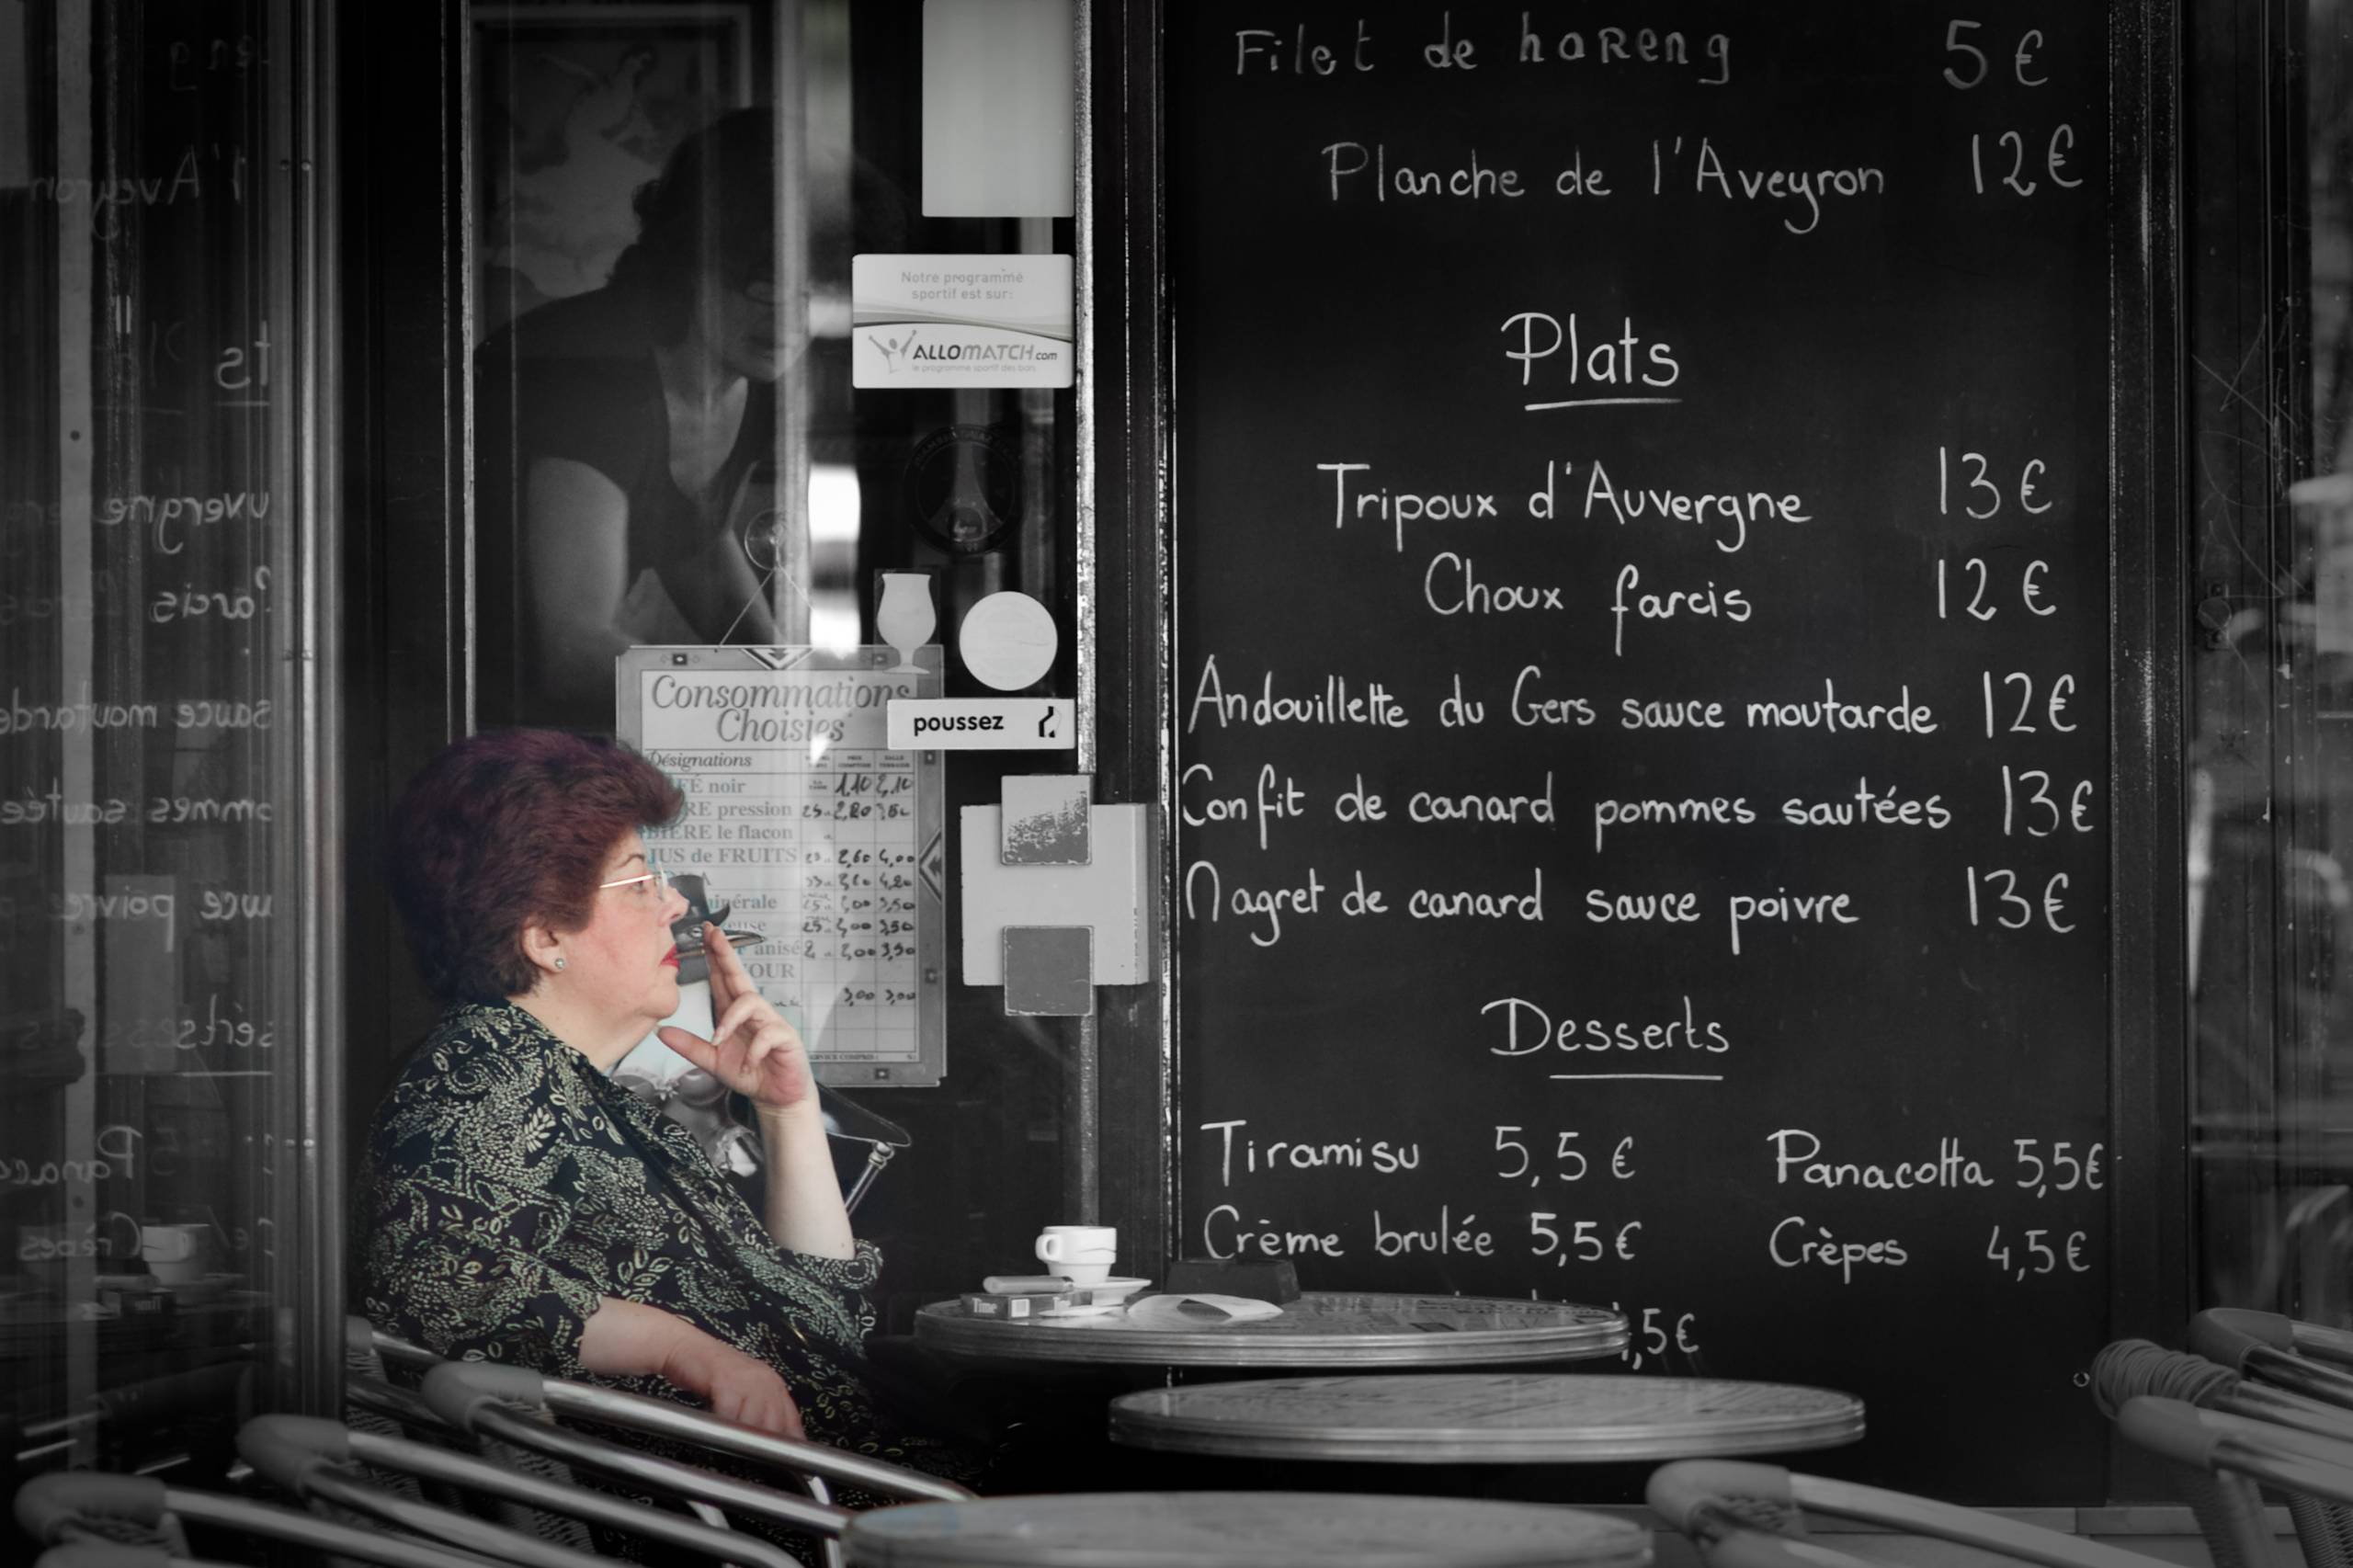 Filet de hareng 5€
Planche de l'Aveyron 12€
Plats
Tripoux d'Auvergne 13€
Choux farcis 12€
Andouillette du Gers sauce moutarde 12€
Confit de canard pommes sautées 13€
Magret de canard sauce poivre 13€
Desserts
Tiramisu 5,5€ Panacotta 5,5€
Crème brulée 5,5€ Crèpes 4,5€
,5€
Notre programme
sportif est sur:
ALLOMATCH.com
le programme sportif des bars
poussez
Consommations
Choisies
Désignations
noir 1,10 2,10
pression
BIERE le flacon
JUS de FRUITS 2,60 4,00
anisé
3,00 3,00
Time